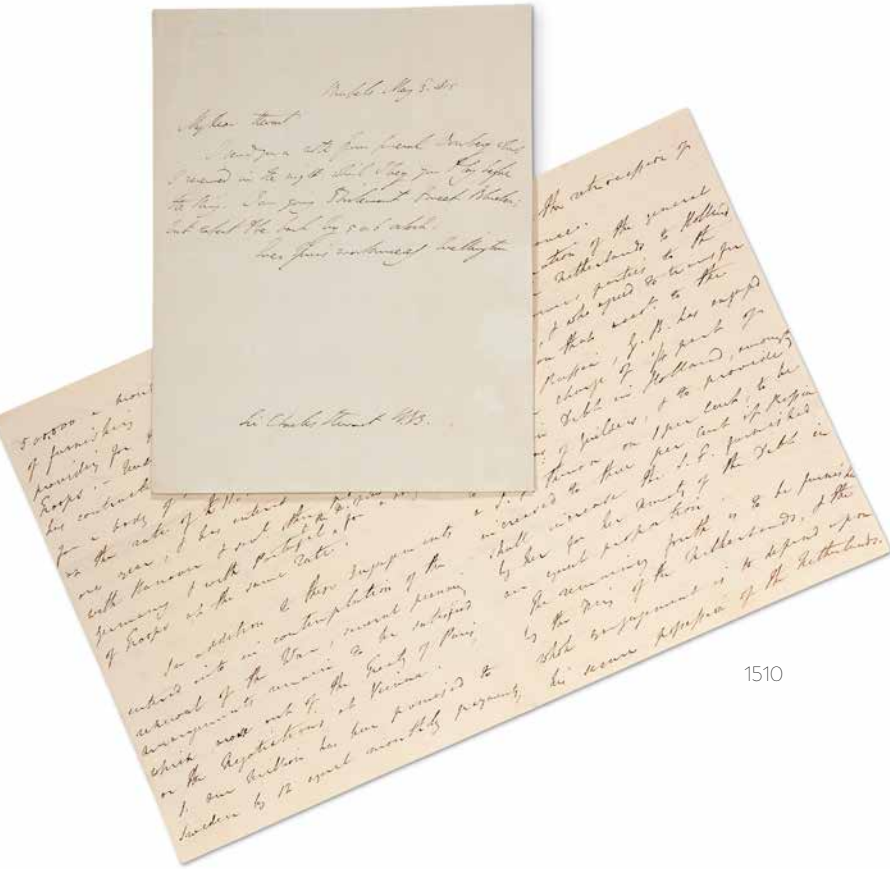 Brussels May 3. 1815
My dear Stuart
I send you a note from General Dornberg which
I received in the night which I beg you to lay before
the King. I am going Blücher;
but to be back by 5 or 6 o'clock.
Ever Yours Wellington
Sir Charles Stuart K.B.
500,000 a
of furnishing
providing for
Troops -
his contract
for a body of
at the rate of
one year, & has entered
with Hanover & such other
Germany & with Portugal for a
of Troops at the same rate.
In addition to these Engagements
entered into in contemplation of the
renewal of the War, several pecuniary
arrangements remain to be satisfied
which arose out of the Treaty of Paris,
or the Negotiations at Vienna.
1. One Million has been promised to
Sweden by 12 equal monthly payments,
the retrocession of
of the general
Netherlands to Holland
parties to the
& who agreed to transfer
that accest to the
Russia, G.B. has engaged
charge of part of
Debt in Holland, amongst
of guilders, & to provide
a on 1 per Cent; to be
increased to three per cent if Russia
shall increase the S.F. furnished
by her for her moiety of the Debt in
an equal proportion.
The remaining fourth is to be furnished
by the King of the Netherlands, & the
whole engagement is to depend upon
his secure possession of the Netherlands.
1510